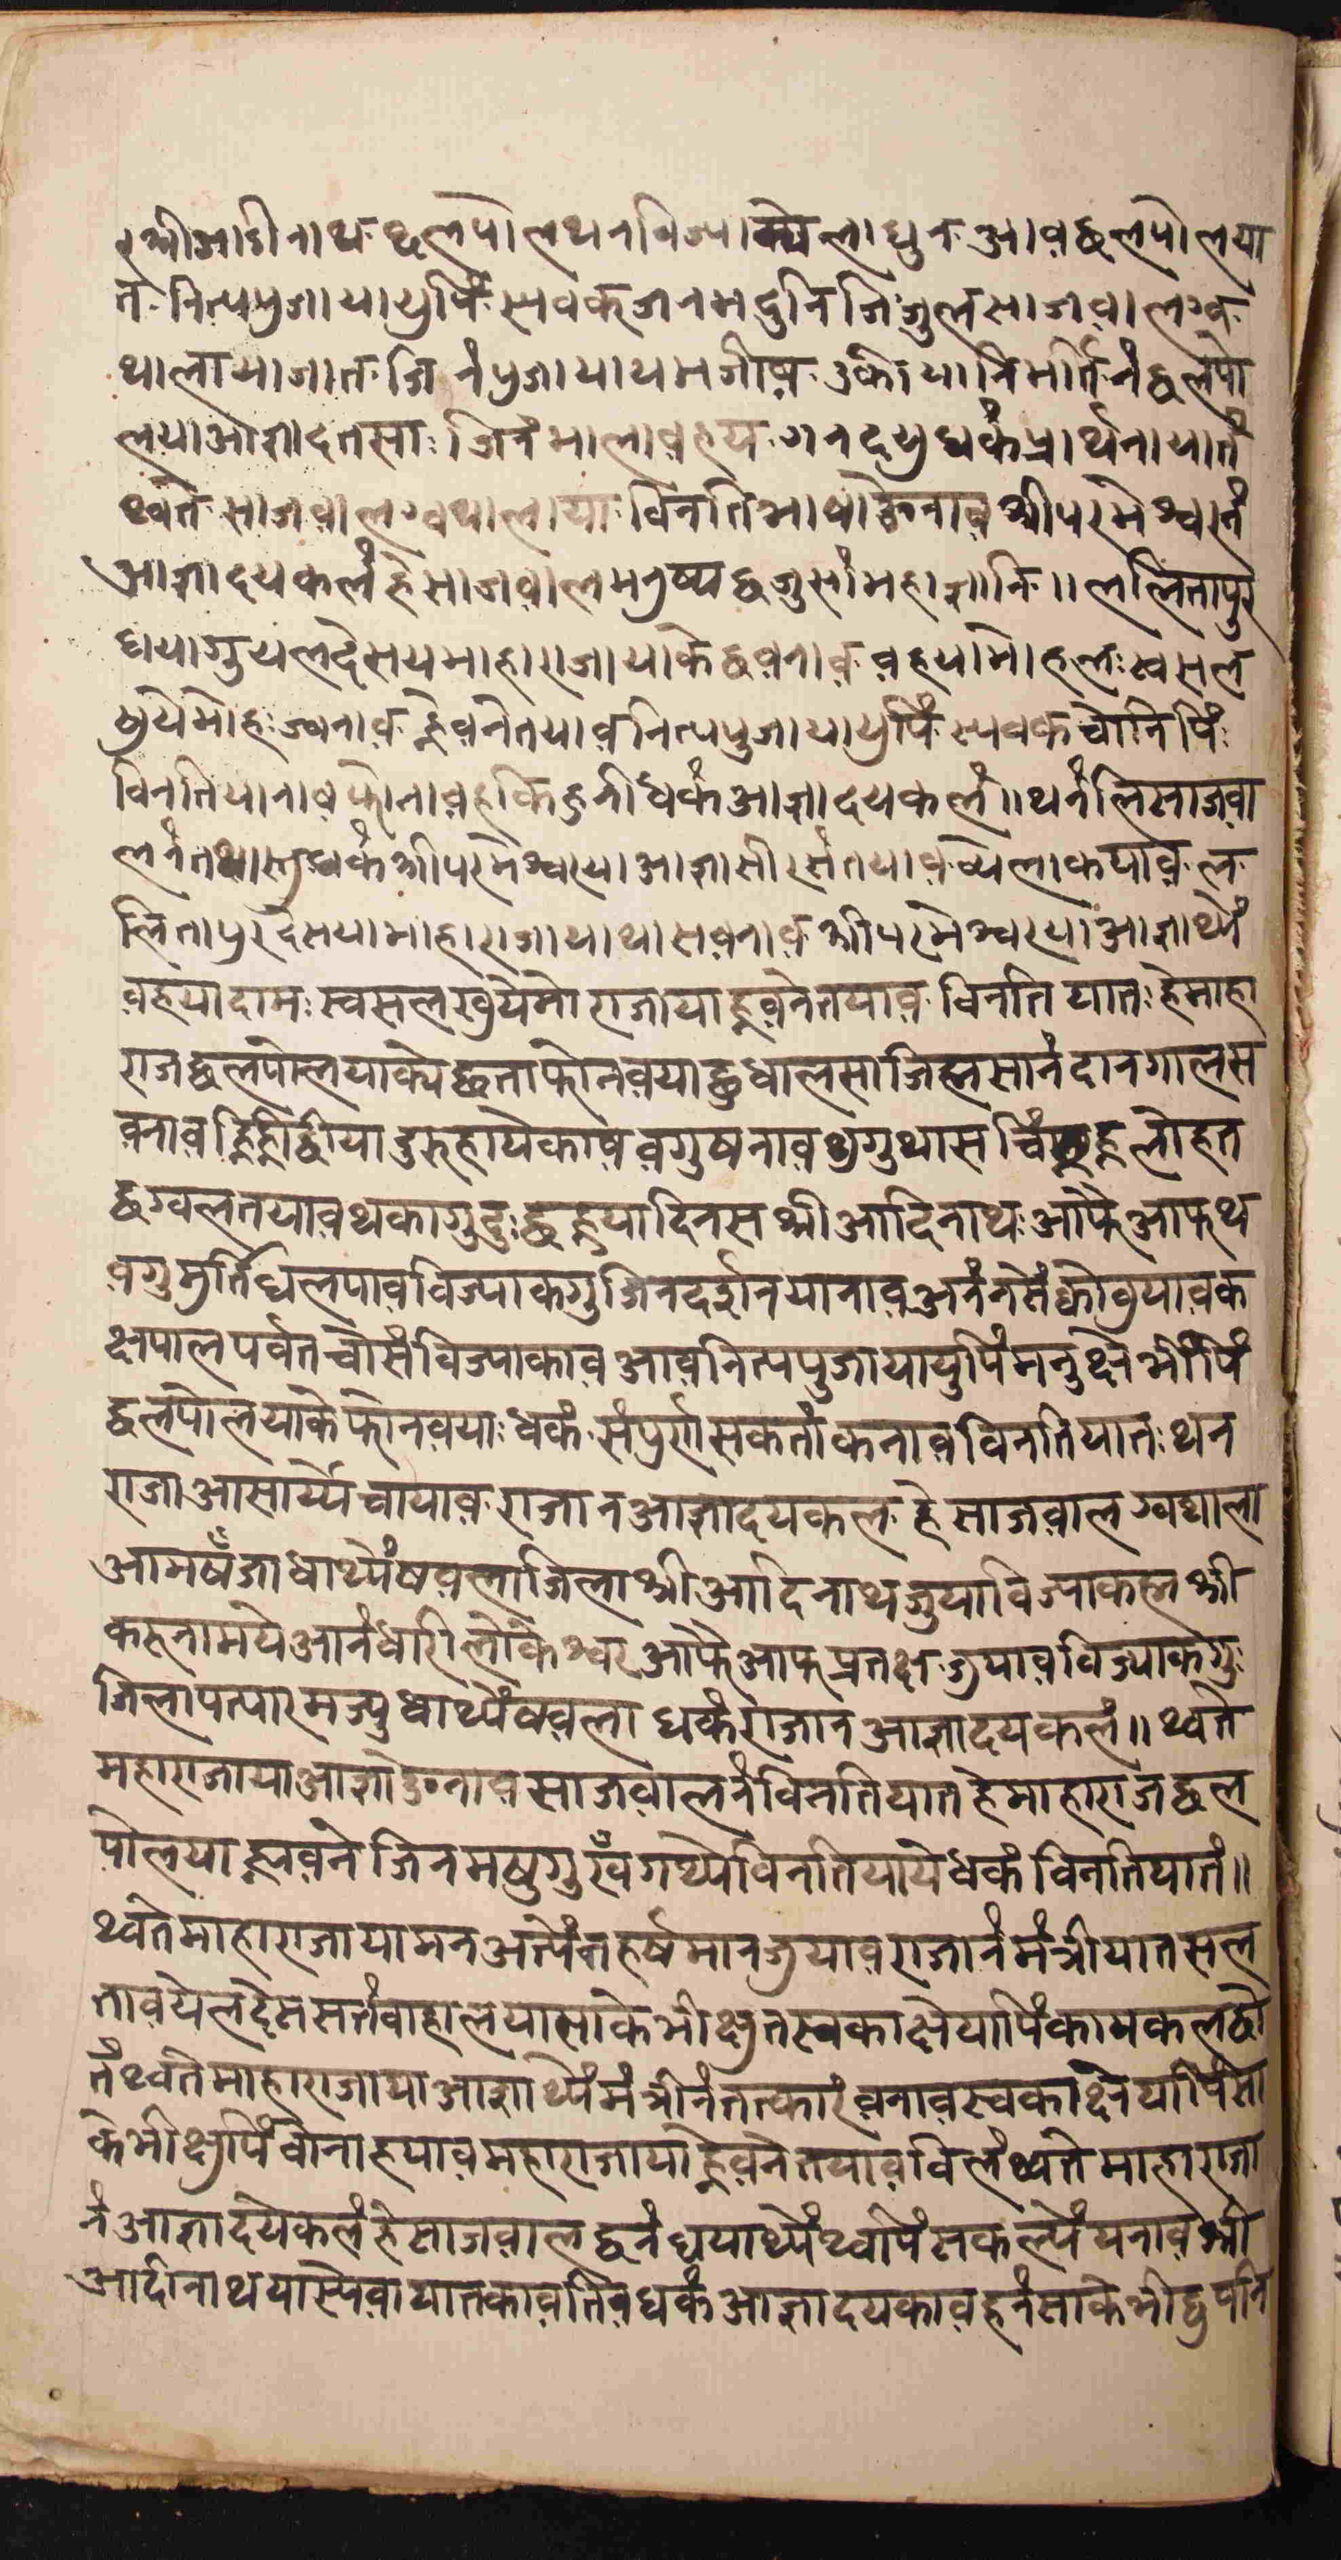 श्रीआदिनाथ छलपोलथनविज्याक्येला धुन आव छलपोलया
त नित्यपुजायायुपिं स्यवकजनमदुनि जि गुलसाजवालग्व
थालायाजात जिनं पुजायाय मजीव उकेया निमर्तिनं छलपो
लयाआज्ञादतसा जिनं मालाव हय गनदयुधकं प्रार्थनायातं
थ्वते साजवालग्वथालाया विनतिभाषाङेनाव श्रीपरमेश्वरनं
आज्ञादयकलं हे साजवालमनुष्य छजुसां महाज्ञानि ॥ ललितापुर
धयागु यलदेसयमाहाराजायाके छवनाव वहयामोहलः स्वसल
खुयेमोहः ज्वनाव ह्नेवनेतयाव नित्यपुजायायुपिं स्यवक चोनिपिं
विनतियानाव फोनाव हकि जुगी धकं आज्ञादयकलं ॥ थनंलि साजवा
लनं तथास्तुधकं श्रीपरमेश्वरया आज्ञा सीरसंतयाव ब्येलाकयाव ल
लितापुरदेसया माहाराजायाथास वनाव श्रीपरमेश्वरया आज्ञाथ्यें
वहयादामः स्वसलखुयेमो राजायाह्नेवनेतयाव विनतियातः हेमाहा
राज छलपोलयाक्ये छता फोनवया छुधालसा जिह्मसानं दानगालस
वनाव
छग्वलतयाव थकागु दुः छह्नुयादिनस श्रीआदिनाथ आफै आफ थ
वगुमुर्तिधलपाव विज्याकगु जिन दर्शनयानाव अनंनसें क्वोवुयाव क
क्षपालपर्वत चोसं विज्याकाव आव नित्यपुजायायुपिं मनुक्षे भींपिं
छलपोलयाके फोनवयाः धकं संपुर्णसकतां कनाव विनतियातः थन
राजा आसार्य्य चायाव राजान आज्ञादयकल हे साजवालग्वथाला
आमखँ जाधाथ्यें षवला जिला श्रीआदिनाथ जुयाविज्याकह्म श्री
करूनामये आनंधारीलोकेश्वर आफै आफ प्रतक्ष जुयाव विज्याकगु
जिला पत्यारमज्यु धाथ्यें षवला धकं राजान आज्ञादयकलं ॥ थ्वते
महाराजाया आज्ञा ङेनाव साजवालनं विनतियात हेमाहाराज छल
पोलया ह्नेवने जिन मषुगुखँ गथ्ये विनतियाये धकं विनतियातं ॥
थ्वते माहाराजाया मन अत्यंत हर्षमानजुयाव राजानं मंत्रीयात सल
ताव येलदेसस वाहालया साकेभीक्षु त स्वकाक्षेयापिं कायकलछो
तँ थ्वते माहाराजाया आज्ञाथ्यें मंत्रीनं तत्कारं वनाव स्वकाक्षेयापिं सा
केभीक्षुपिं बोनाहयाव महाराजाया ह्नेवनेतयाव विलं थ्वते माहाराजा
नं आज्ञादयेकलं हे साजवाल छनं धयाथ्यें थ्वपिं सकल्यें यनाव श्री
आदीनाथयास्येवा यातकाव तिव धकं आज्ञादयकाव हनं साकेभीक्षुपनि